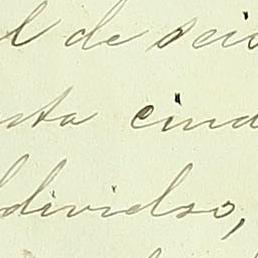 l de seis
sta cinco
dividso,